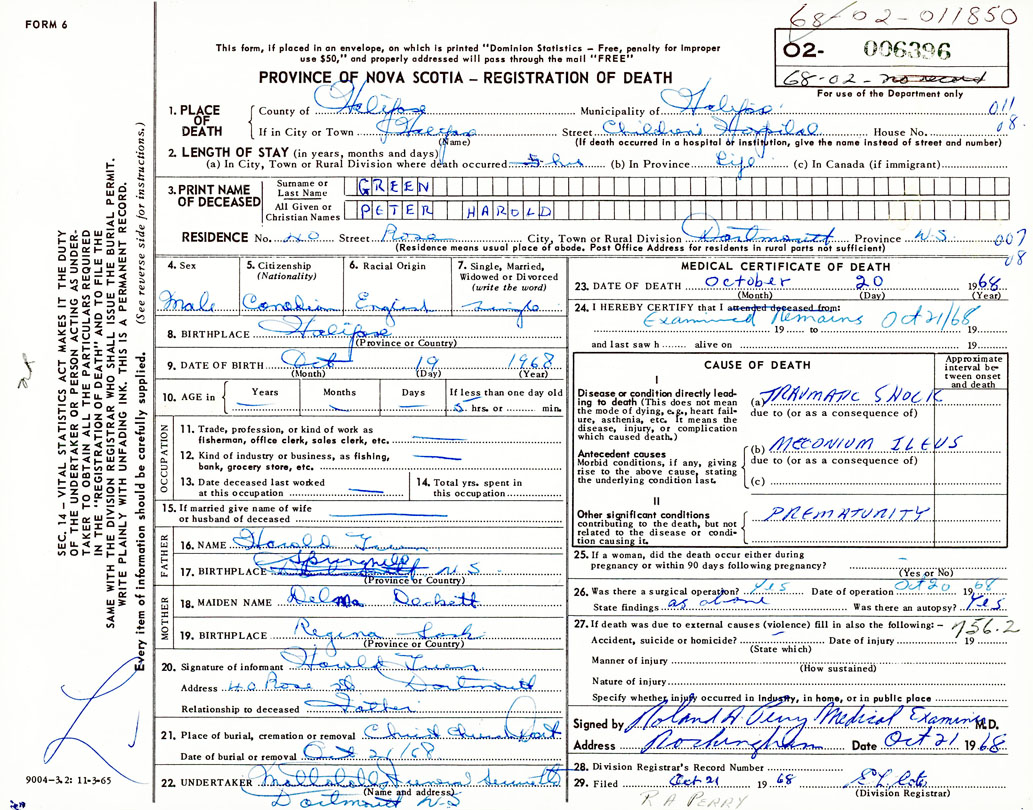 FORM 6
68-02-011850
This form, if placed in an envelope, on which is printed "Dominion Statistics – Free, penalty for Improper
use $50," and properly addressed will pass through the mail "FREE"
02- 006396
PROVINCE OF NOVA SCOTIA – REGISTRATION OF DEATH
68-02- no record
For use of the Department only
1. PLACE OF DEATH
County of Halifax Municipality of Halifax 011
If in City or Town Halifax Street Children's Hospital House No. 08.
(Name) (If death occurred in a hospital or institution, give the name instead of street and number)
2. LENGTH OF STAY (in years, months and days)
(a) In City, Town or Rural Division where death occurred 5 hrs (b) In Province Life (c) In Canada (if immigrant)
3. PRINT NAME OF DECEASED
Surname or Last Name GREEN
All Given or Christian Names PETER HAROLD
RESIDENCE No. 40 Street Rose City, Town or Rural Division Dartmouth Province N.S. 007
(Residence means usual place of abode. Post Office Address for residents in rural parts not sufficient) 08
4. Sex
Male
5. Citizenship
(Nationality)
Canadian
6. Racial Origin
English
7. Single, Married,
Widowed or Divorced
(write the word)
Single
8. BIRTHPLACE Halifax
(Province or Country)
9. DATE OF BIRTH Oct 19 1968
(Month) (Day) (Year)
10. AGE in
Years Months Days If less than one day old
5 hrs. or min.
OCCUPATION
11. Trade, profession, or kind of work as
fisherman, office clerk, sales clerk, etc.
12. Kind of industry or business, as fishing,
bank, grocery store, etc.
13. Date deceased last worked
at this occupation
14. Total yrs. spent in
this occupation
15. If married give name of wife
or husband of deceased
FATHER
16. NAME Harold Green
Springhill
17. BIRTHPLACE N.S.
(Province or Country)
MOTHER
18. MAIDEN NAME Delma Beckett
19. BIRTHPLACE Regina Sask
(Province or Country)
20. Signature of informant Harold Green
Address 40 Rose St Dartmouth
Relationship to deceased Father
21. Place of burial, cremation or removal Christ Church Dart
Date of burial or removal Oct 21/68
22. UNDERTAKER Funeral
(Name and address)
Dartmouth N-S
MEDICAL CERTIFICATE OF DEATH
23. DATE OF DEATH October 20 1968
(Month) (Day) (Year)
24. I HEREBY CERTIFY that I attended deceased from:
Examined Remains Oct 21/68
19 to 19
and last saw h alive on 19
CAUSE OF DEATH
Approximate
interval be-
tween onset
and death
I
Disease or condition directly lead-
ing to death (This does not mean
the mode of dying, e.g., heart fail-
ure, asthenia, etc. It means the
disease, injury, or complication
which caused death.)
(a) TRAUMATIC SHOCK
due to (or as a consequence of)
Antecedent causes
Morbid conditions, if any, giving
rise to the above cause, stating
the underlying condition last.
(b) MECONIUM ILEUS
due to (or as a consequence of)
(c)
II
Other significant conditions
contributing to the death, but not
related to the disease or condi-
tion causing it.
PREMATURITY
25. If a woman, did the death occur either during
pregnancy or within 90 days following pregnancy?
(Yes or No)
26. Was there a surgical operation? Yes Date of operation Oct 20 1968
State findings as above Was there an autopsy? Yes
27. If death was due to external causes (violence) fill in also the following:– 756.2
Accident, suicide or homicide? Date of injury 19
(State which)
Manner of injury
(How sustained)
Nature of injury
Specify whether injury occurred in Industry, in home, or in public place
Signed by Roland A Perry Medical Examiner M.D.
Address Rockingham Date Oct 21 1968
28. Division Registrar's Record Number
29. Filed Oct 21 1968
(Division Registrar)
R A PERRY
SEC. 14 – VITAL STATISTICS ACT MAKES IT THE DUTY
OF THE UNDERTAKER OR PERSON ACTING AS UNDER-
TAKER TO OBTAIN ALL THE PARTICULARS REQUIRED
IN THE "REGISTRATION OF DEATH" AND TO FILE THE
SAME WITH THE DIVISION REGISTRAR WHO SHALL ISSUE THE BURIAL PERMIT.
WRITE PLAINLY WITH UNFADING INK. THIS IS A PERMANENT RECORD.
Every item of information should be carefully supplied. (See reverse side for instructions.)
9004-3.2: 11-3-65